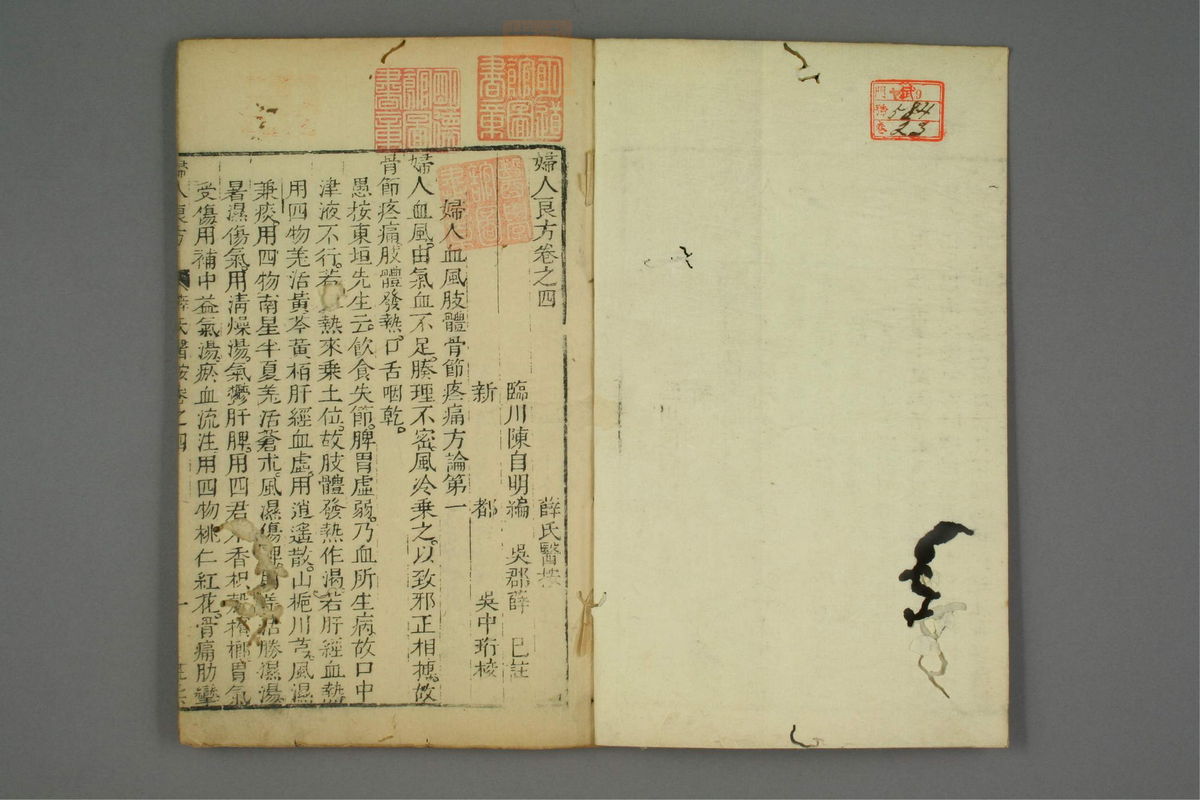 584
23
婦人良方卷之四
薛氏醫按
臨川陳自明編 吳郡薛 已註
新 都 吳中珩校
婦人血風肢體骨節疼痛方論第一
婦人血風由氣血不足腠理不密風冷乘之以致邪正相摶故
骨節疼痛肢體發熱口舌咽乾
愚按東垣先生云飲食失節脾胃虛弱乃血所生病故口中
津液不行若 熱來乘土位故肢體發熱作渴若肝經血熱
用四物羌活黃芩黃栢肝經血虛用逍遙散山梔川芎風濕
兼痰用四物南星半夏羌活蒼朮風濕傷脾 羌活勝濕湯
暑濕傷氣用清燥湯氣鬱肝脾用四君木香枳殼檳榔胃氣
受傷用補中益氣湯瘀血流注用四物桃仁紅花骨痛肋攣
婦人良方 薛氏醫按卷之四 一